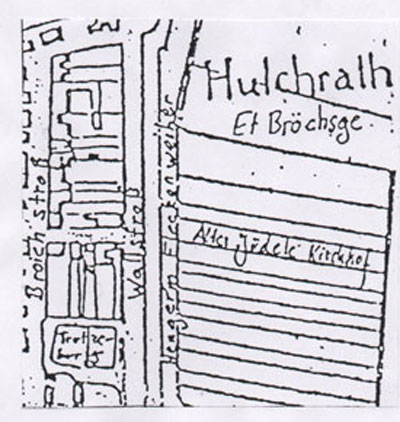 Hulchrath
Et Bröchsge
Alter Jödele Kirchhof
Broichstroß
Wallstroß
Hengerm Fleckenweiher